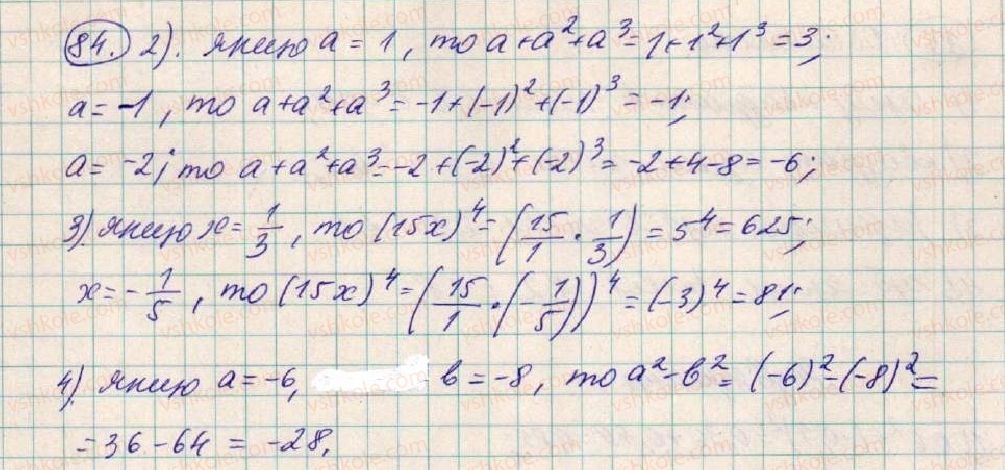 84. 2). якщо a = 1, то a+a²+a³=1+1²+1³=3;
a=-1, то a+a²+a³=-1+(-1)²+(-1)³=-1;
a=-2; то a+a²+a³=-2+(-2)²+(-2)³=-2+4-8=-6;
3) якщо x=1/3, то (15x)⁴=(15/1·1/3)=5⁴=625;
x=-1/5, то (15x)⁴=(15/1·(-1/5))⁴=(-3)⁴=81;
4). якщо a=-6, в=-8, то a²-в²=(-6)²-(-8)²=
=36-64=-28,